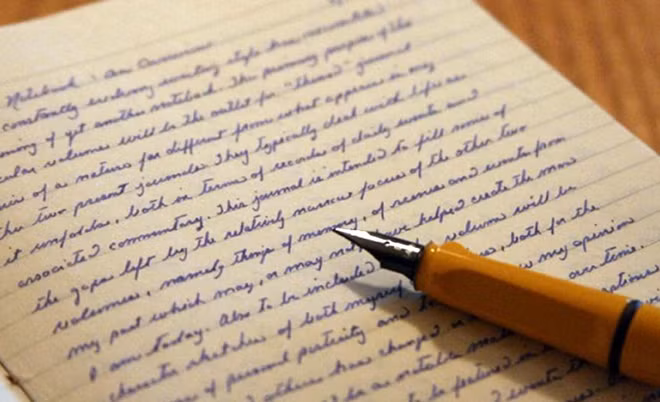 Notebook : An Overview
constantly evolving writing style has necessitated
of yet another notebook. The primary purpose of this
volumes will be the outlet for "themed" journal
of a nature far different from what appears in my
two present journals. They typically deal with life as
it unfolds, both in terms of recorded daily events and
associated commentary. This journal is intended to fill some of
the gaps left by the relatively narrow focus of the other two
volumes, namely things of memory, of scenes and events from
my past which may, or may not, have helped create the man
I am today. Also to be included volume will be
character sketches of both myself , both for the
of personal posterity and my opinion
others have changed over time.
be a notable
to be